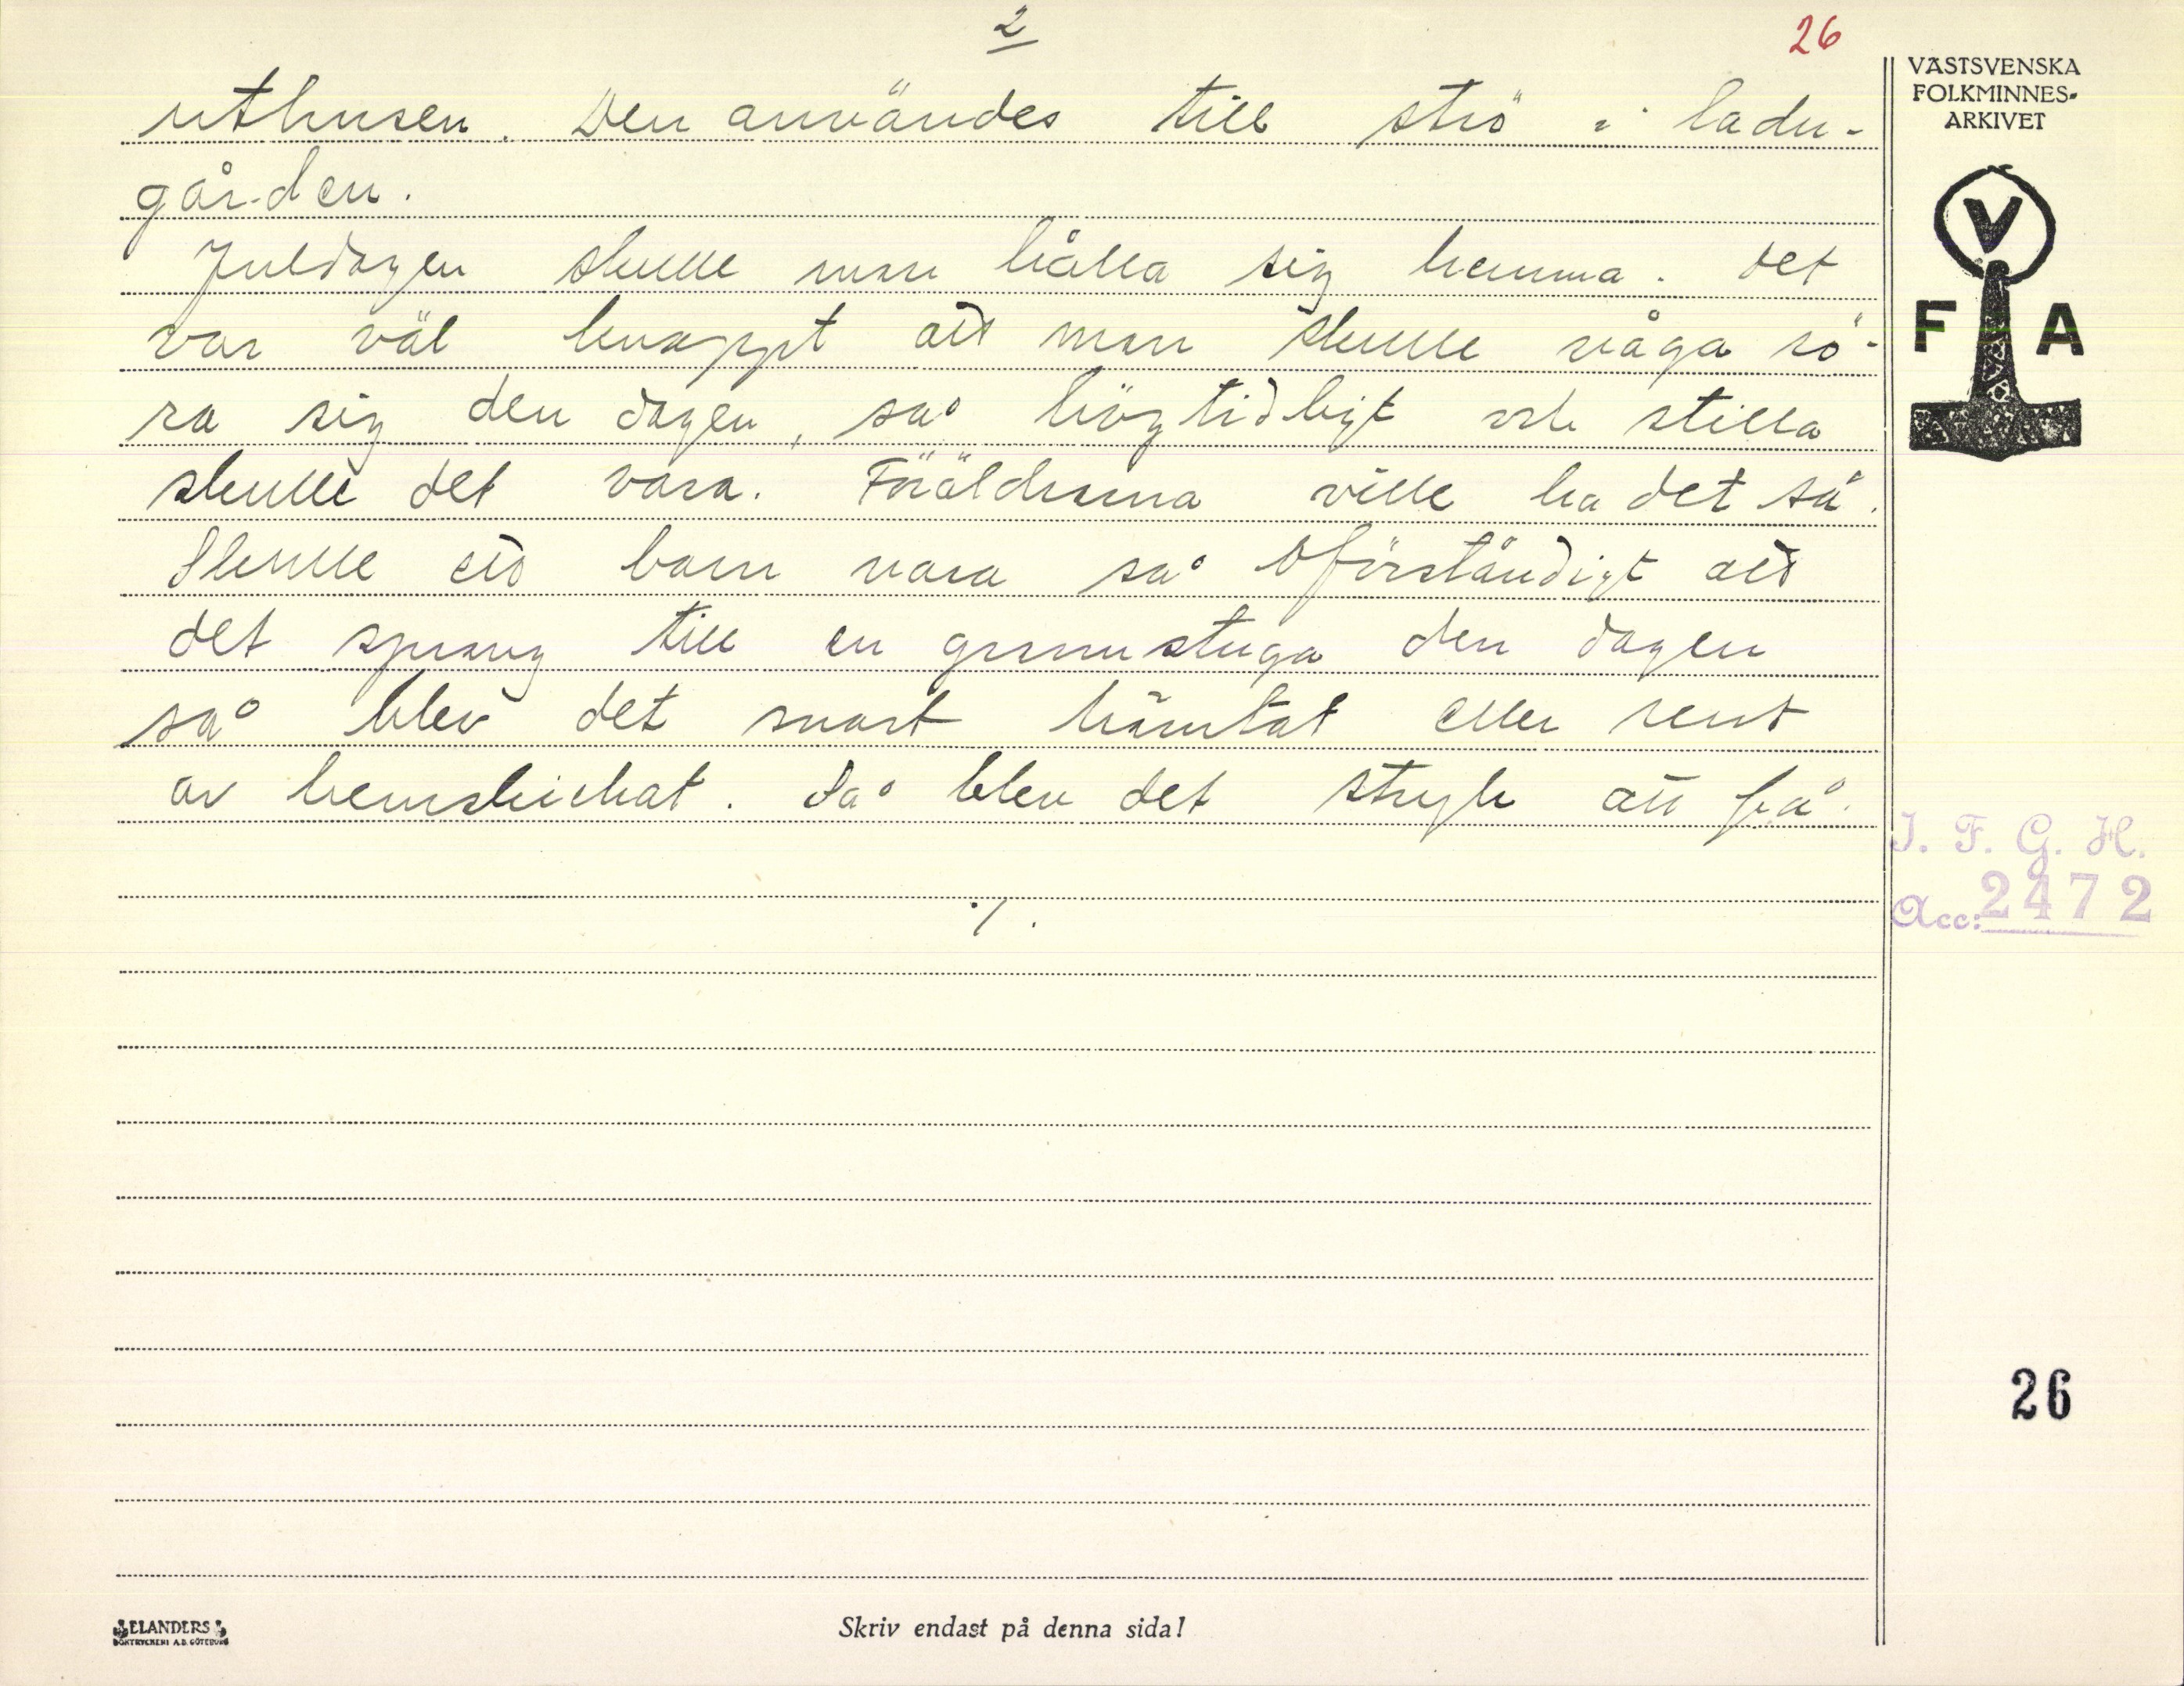 2
26
uthusen. Den användes till strö i ladu-
gården.
Juldagen skulle man hålla sig hemma. Det
var väl knappt att man skulle våga rö-
ra sig den dagen, så högtidligt och stilla
skulle det vara. Föräldrarna ville ha det så.
Skulle ett barn vara så oförståndigt att
det sprang till en grannstuga den dagen
så blev det snart hämtat eller rent
av hemskickat. Då blev det stryk att få.
./.
VÄSTSVENSKA
FOLKMINNES-
ARKIVET
V
F A
I. F. G. H.
Acc: 2472
26
ELANDERS
BOKTRYCKERI A.B. GÖTEBORG
Skriv endast på denna sida!